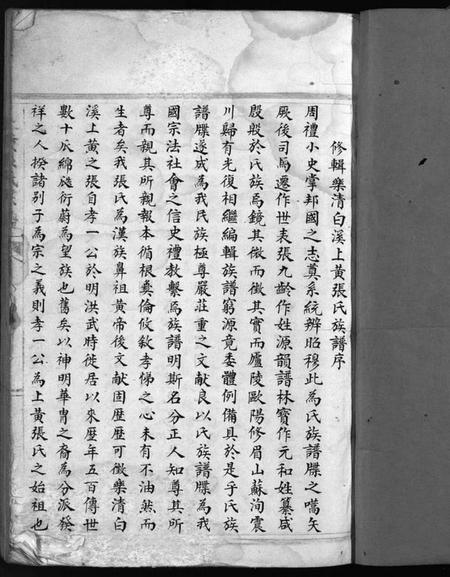 修輯樂清白溪上黃張氏族譜序
周禮小史掌邦國之志奠系統辨昭穆此為氏族譜牒之嚆矢
厥後司馬遷作世表張九齡作姓源韻譜林寶作元和姓纂咸
殷殷於氏族焉鏡其微而徵其實而廬陵歐陽修眉山蘇洵震
川歸有光復相繼編輯族譜窮源竟委體例備具於是乎氏族
譜牒遂成為我民族極尊嚴莊重之文献良以氏族譜牒為我
國宗法社會之信史禮教繫焉族譜明斯名分正人知尊其所
尊而親其所親報本循根彝倫攸敘孝悌之心未有不油然而
生者矣我張氏為漢族鼻祖黃帝後文献固歷歷可徵樂清白
溪上黃之張自孝一公於明洪武時徙居以來歷年五百傳世
數十瓜綿瓞衍蔚為望族也舊矣以神明華冑之裔為分派發
祥之人揆諸別子為宗之義則孝一公為上黃張氏之始祖也